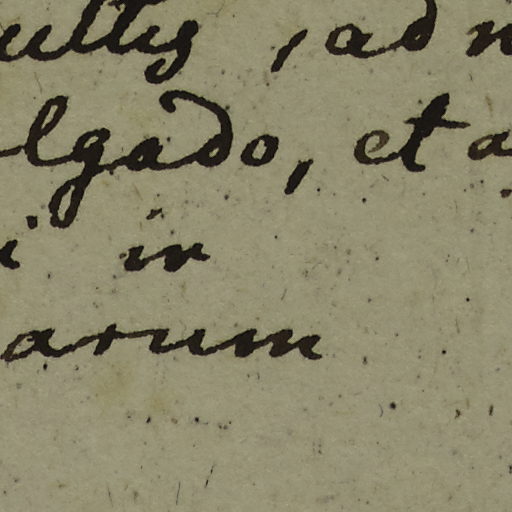 ultis, ad n
lgado, et a
i in
arum